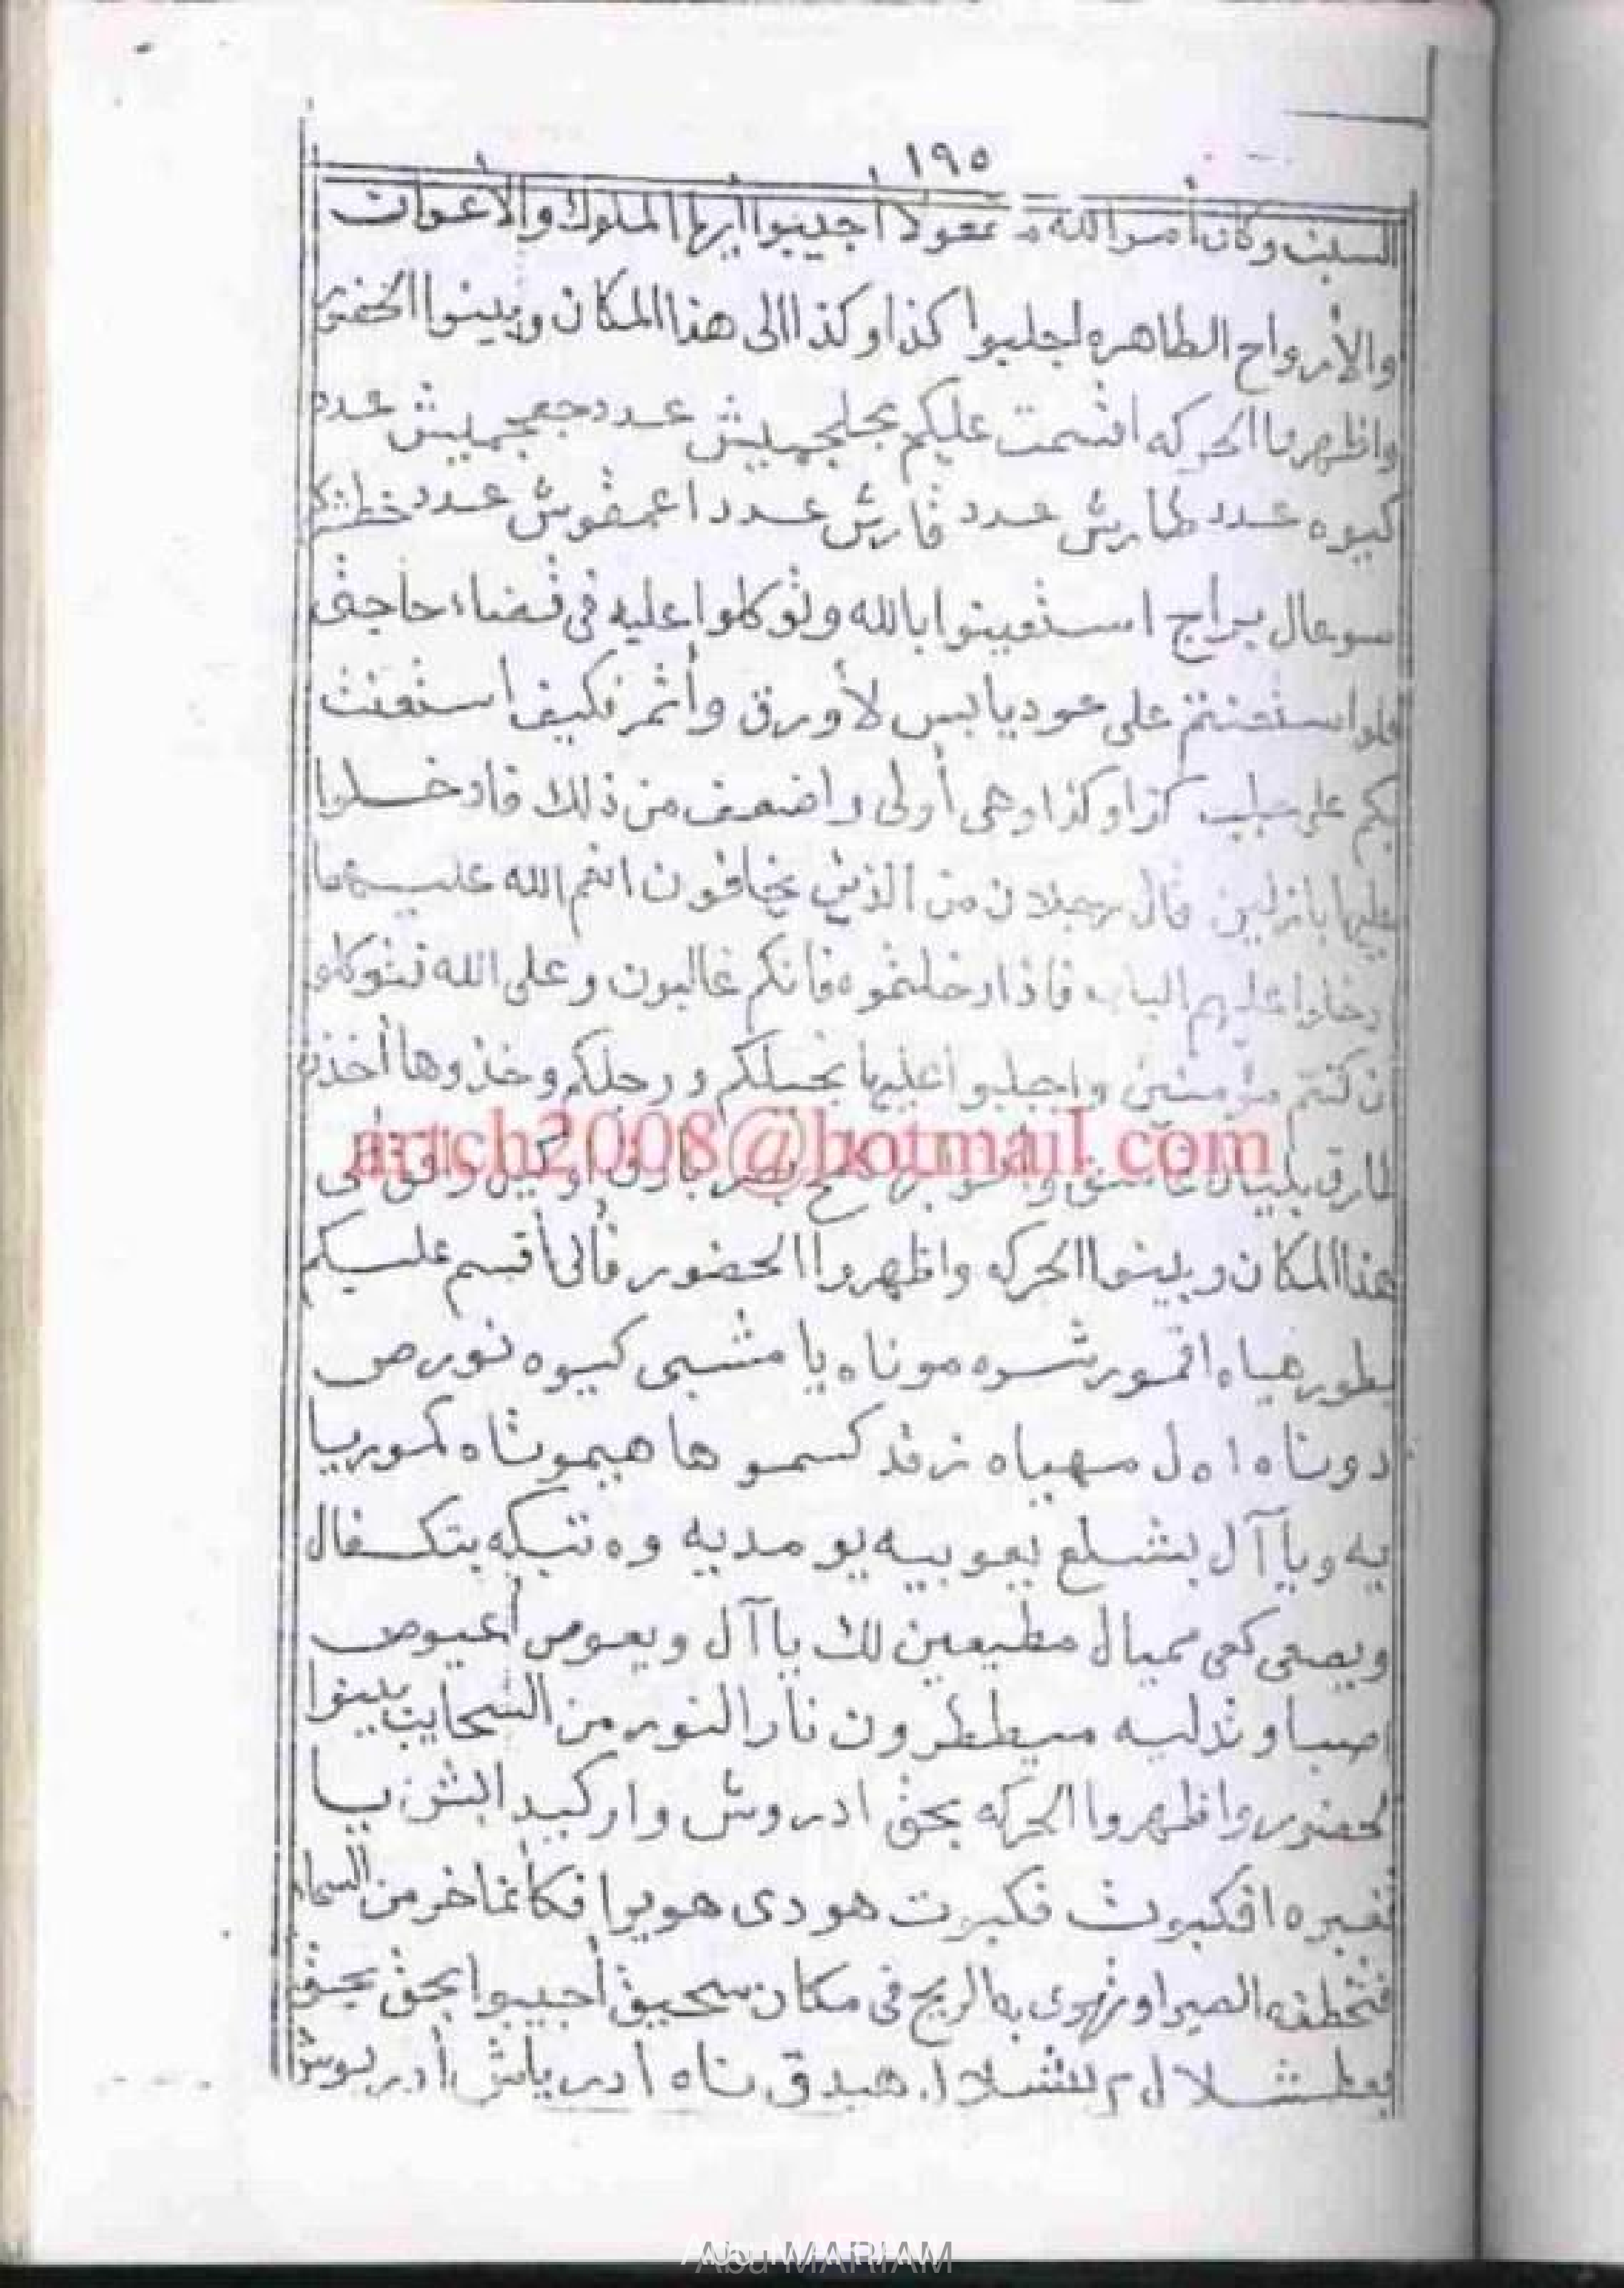 ١٩٥
السبت وكان أمر الله مفعولا أجيبوا أيها الملوك والأعوان
والأرواح الطاهره لجلبوا كذا وكذا الى هذا المكان وبينوا الحضور
واظهروا الحركه اقسمت عليكم بجلجميش عدد جعجميش عدد
كيوه عدد طارش عدد فارش عدد اعمقوش عدد
سوعال براج استعينوا بالله وتوكلوا عليه فى قضاء حاجتى
فلو استعنتم على عود يابس لأورق وأثمر فكيف استعنت
بكم على جلب كذا وكذا وهى أولى واضعف من ذلك فادخلوا
عليها يا نزلين قال رجلان من الذين يخافون انعم الله عليهما
ادخلوا عليهم الباب فاذا دخلتموه فانكم غالبون وعلى الله فتوكلو
ان كنتم مؤمنين واجلبوا عليها بخيلكم ورجلكم وخذوها أخذه
artch2008@hotmail.com
طارق بليل
هذا المكان وبينوا الحركه واظهروا الحضور فأنى أقسم عليكم
بطورهياه اقمورشوه موناه يا مشبى كيوه نورص
دوناه اه ل مهياه نرقد كسمو ها هيموثاه كموريا
يه ويا آل بشلع يعوبيه يو مديه وه نتبكه بتكفال
ويصعى كعى ميال مطيعين لك يا آل ويعوص أعيوص
اصبا وثدليه ميططرون نار النور من السحايب بينوا
لحضور واظهروا الحركه بحق ادروش واركبد ابشزيا
نعبره افكبروث فكبرت هودى هويرا فكأنما خر من السماء
فتخطفه الطير او تهوى به الريح فى مكان سحيق أجيبوا بحق بحق
بعلشلا ل م لشلا ا هبدق ناه ادرياش أدريوش
Abu MARIAM